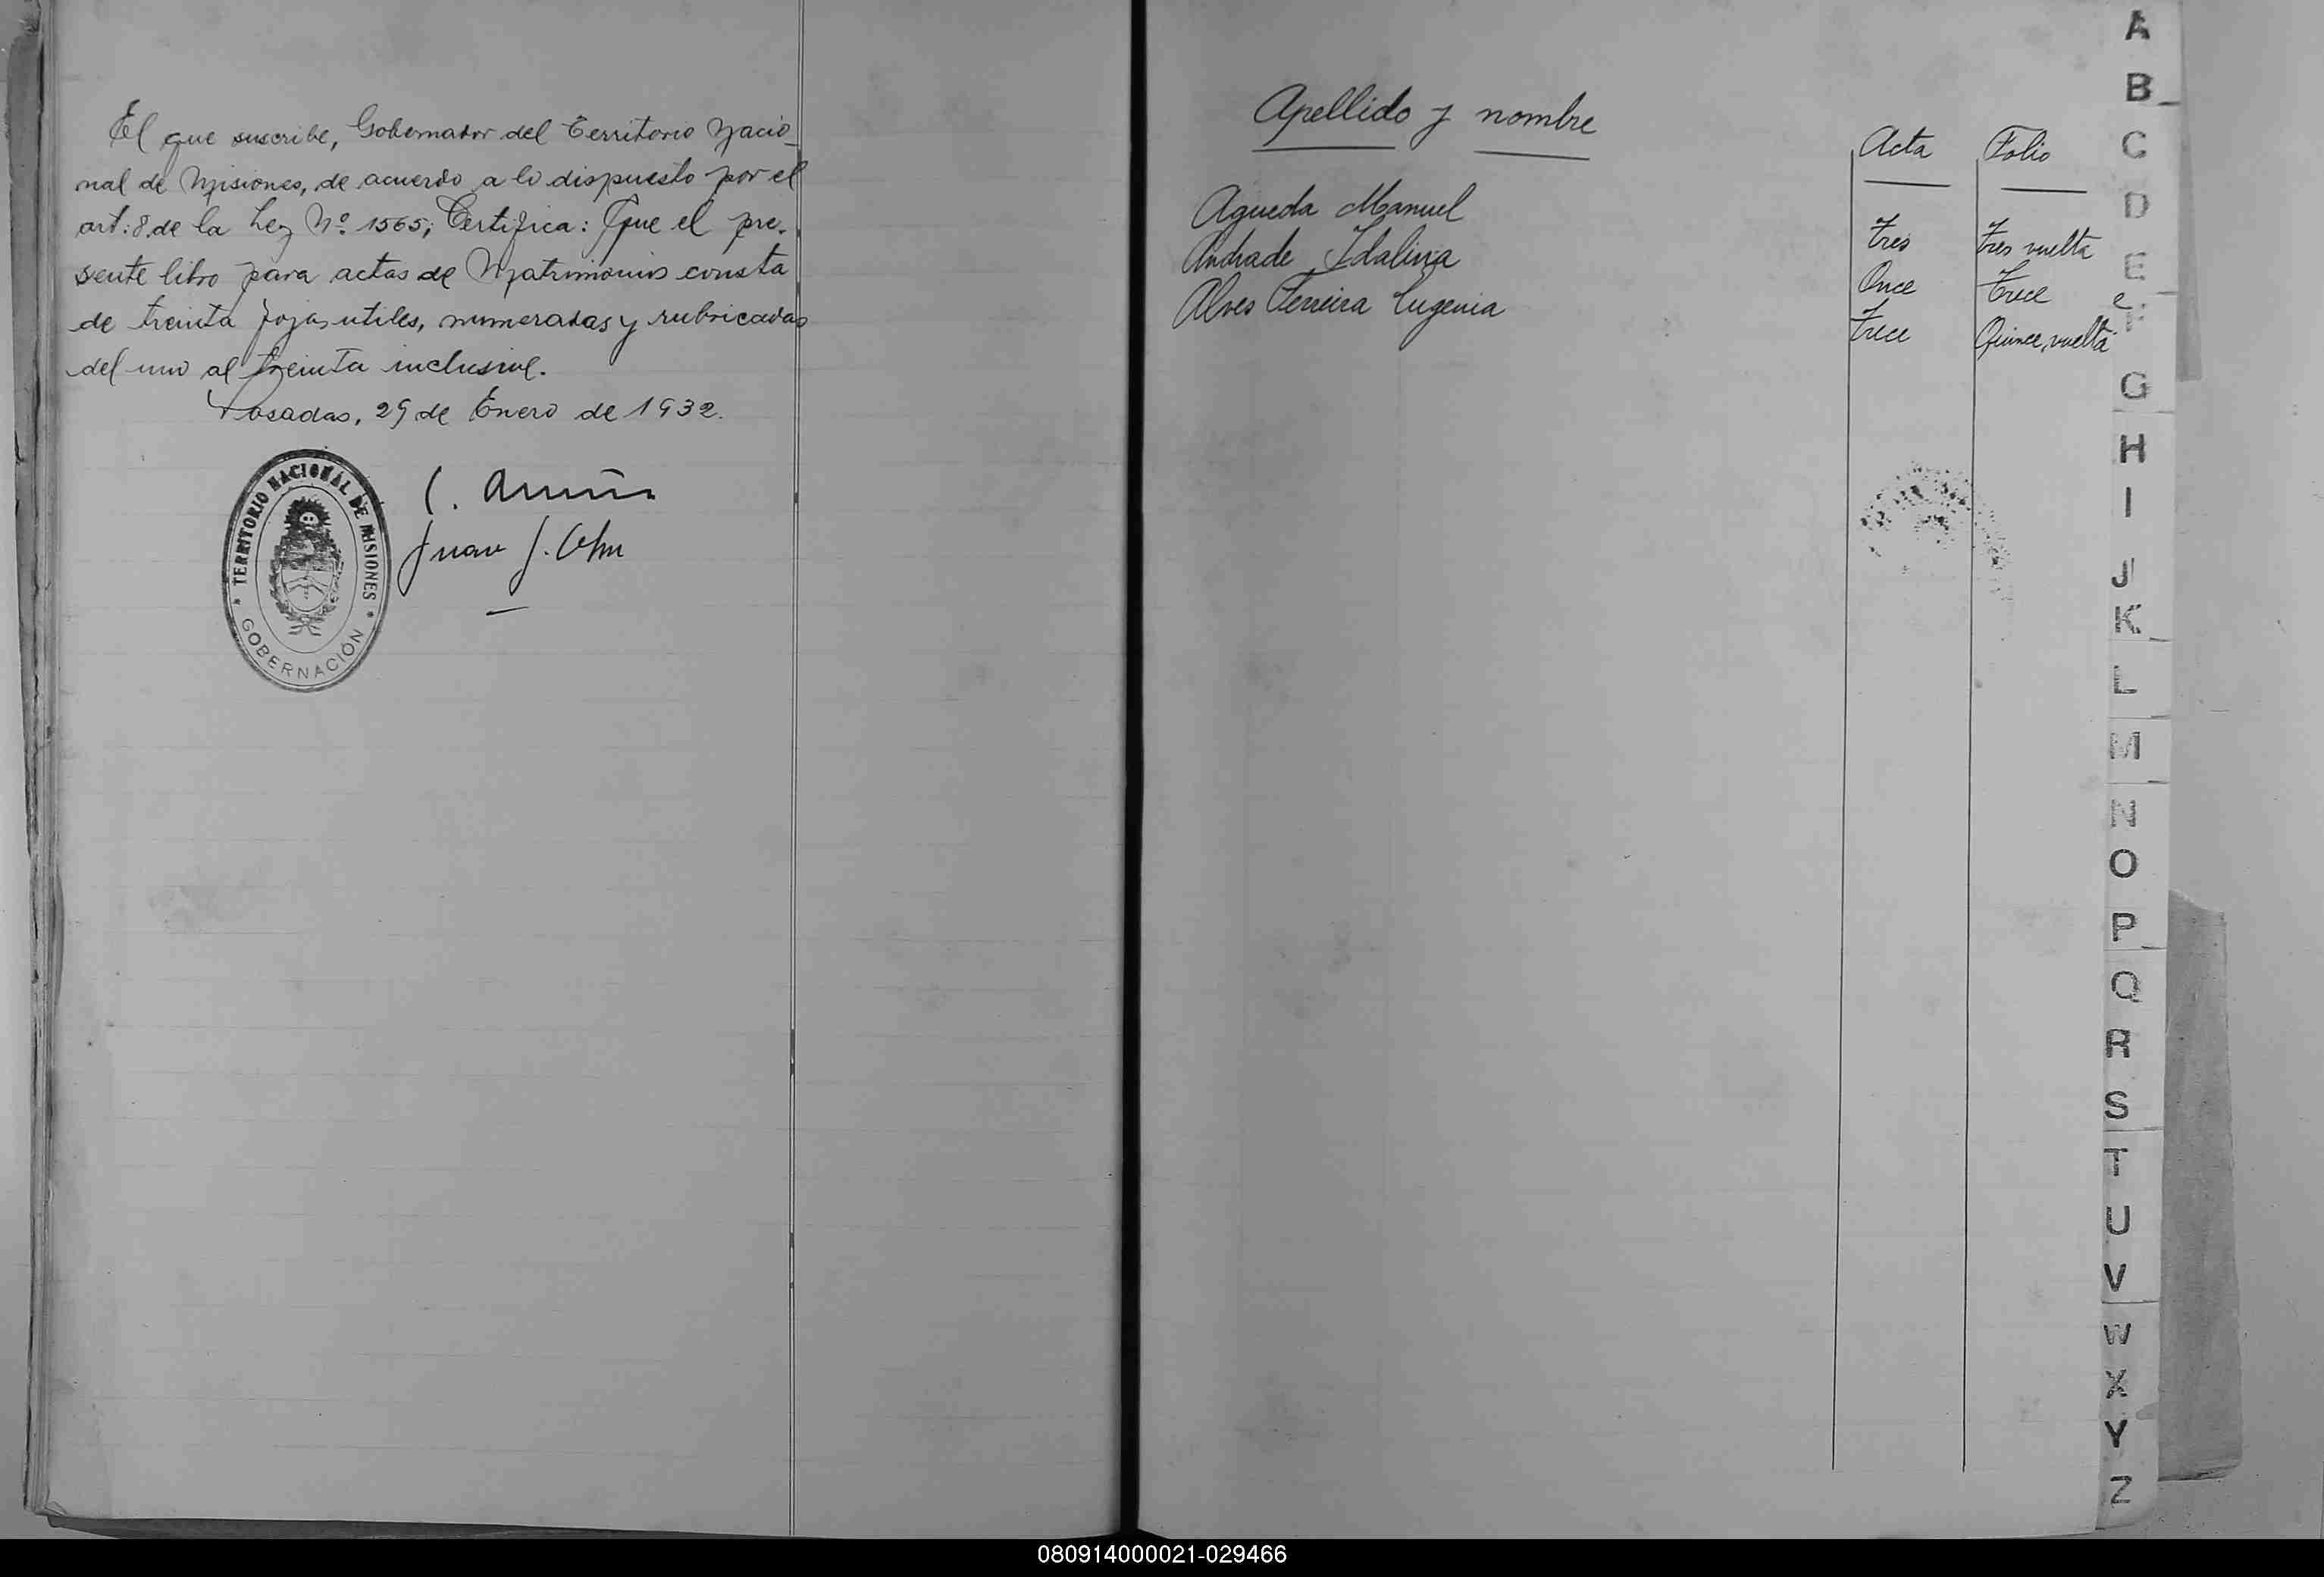 El que suscribe, Gobernador del Territorio Nacio-
nal de Misiones, de acuerdo a lo dispuesto por el
art: 8 de la Ley Nº 1565; Certifica: Que el pre-
sente libro para actas de Matrimonios consta
de treinta fojas utiles, numeradas y rubricadas
del uno al treinta inclusive.
Posadas, 29 de Enero de 1932.
TERRITORIO NACIONAL DE MISIONES
GOBERNACIÓN
C.
Juan J.
Apellido y nombre
Acta Folio
Agueda Manuel Tres Tres vuelta
Andrade Idalina Once Trece
Alves Ferreira Eugenia Trece Quince vuelta
A
B
C
D
E
F
G
H
I
J
K
L
M
N
O
P
Q
R
S
T
U
V
W
X
Y
Z
080914000021-029466